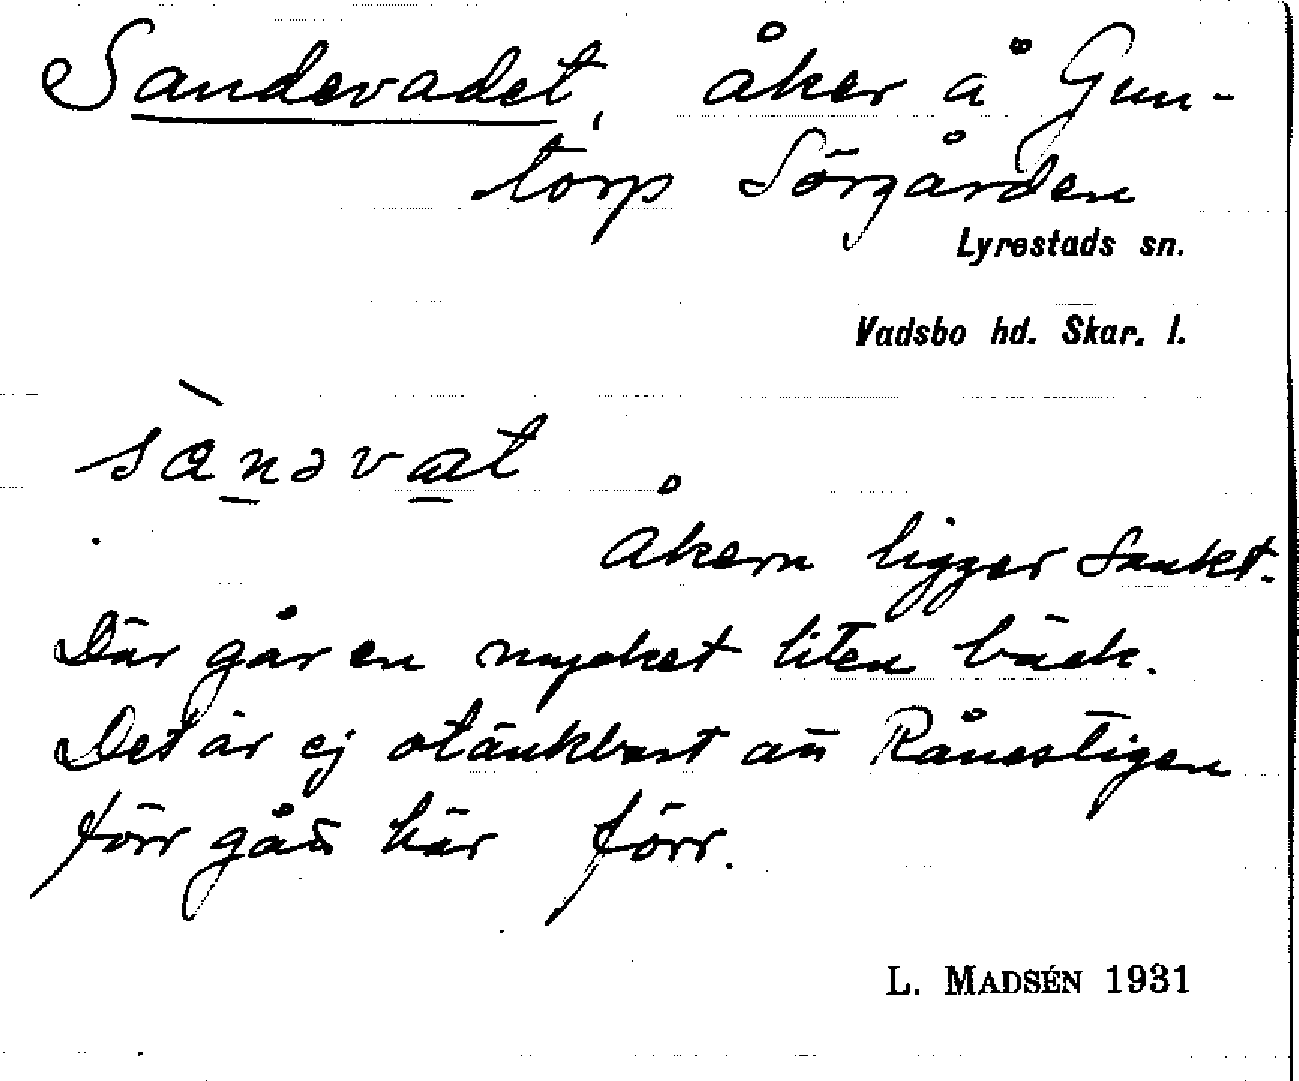 Sandevadet, åker å Gun-
torp Sörgården
Lyrestads sn.
Vadsbo hd. Skar. l.
sànəvat
Åkern ligger sankt.
Där går en mycket liten bäck.
Det är ej otänkbart att Rånestigen
förr gått här förr.
L. MADSÉN 1931